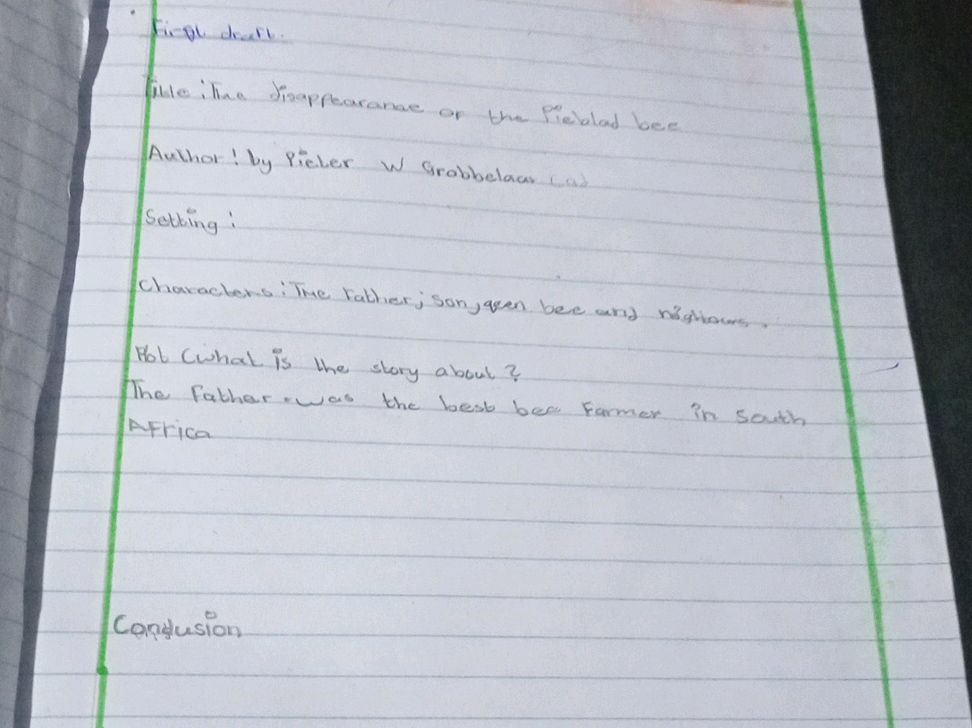 First draft.
Title: The disappearance of the Piebald bee
Author: by Pieter W Grobbelaar (a)
Setting:
Characters: The Father; son, qeen bee and
Plot (what is the story about?
The Father was the best bee Farmer in south
AFrica
Conclusion